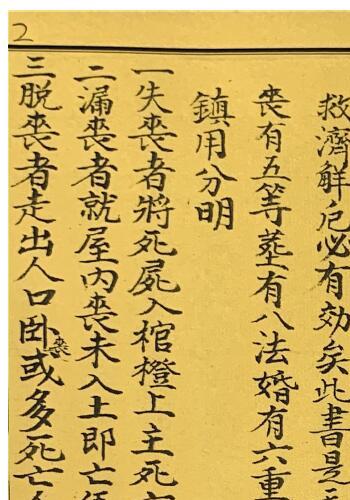 2
救濟解厄必有効矣此書是
喪有五等塟有八法婚有六重
鎮用分明
一失喪者將死屍入棺櫈上主死
二漏喪者就屋內喪未入土即亡
三脱喪者走出人口卧喪或多死亡